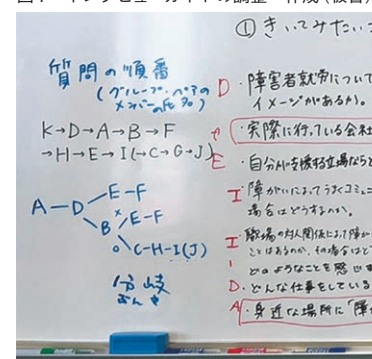 ①きいてみたい
質問の順番
(グループ・ペアの
メンバーの
K→D→A→B→F
→H→E→I(→C→G→J)
A―D
E-F
B
× E-F
○ C-H-I(J)
分岐
ぶんき
D・障害者就労について
イメージがあるか。
・実際に行っている会社
E・自分が支援する立場なら
I・障がいによってうまくコミュニ
場合はどうするのか。
I・職場の対人関係によって障が
ことはあるのか、その場合はど
どのようなことを感じ
D・どんな仕事をしている
A・身近な場所に「障